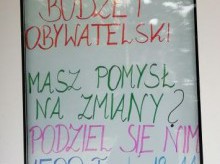 BUDŻET
OBYWATELSKI
MASZ POMYSŁ
NA ZMIANY?
PODZIEL SIĘ NIM